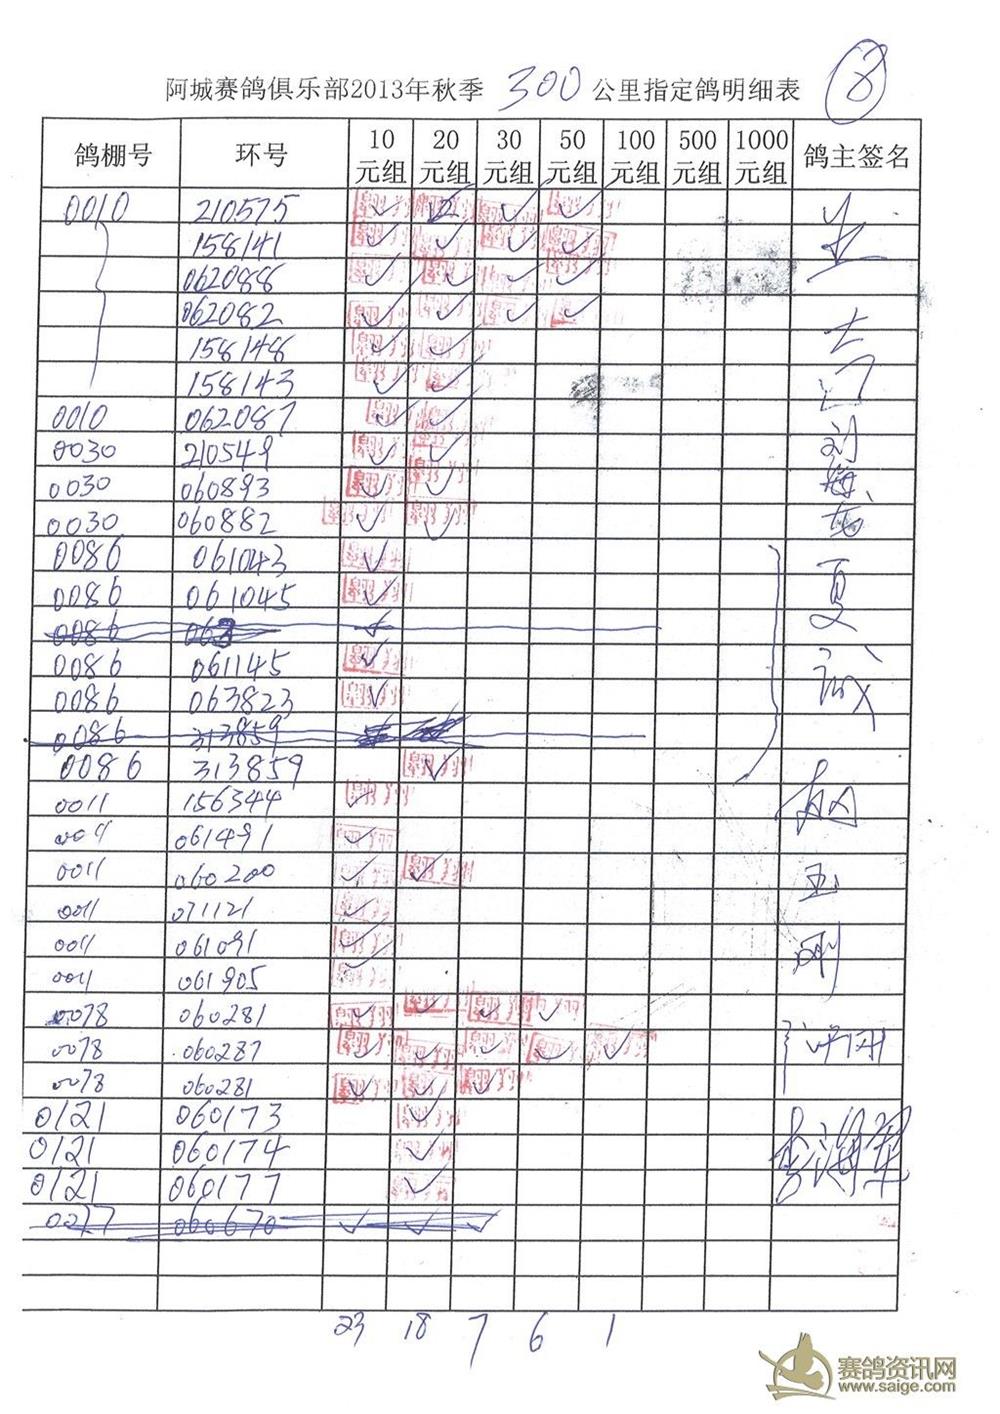 阿城赛鸽俱乐部2013年秋季 300 公里指定鸽明细表 8
鸽棚号 环号 10元组 20元组 30元组 50元组 100元组 500元组 1000元组 鸽主签名
0010 210575 ✓ ✓ ✓ ✓
158141 ✓ ✓ ✓ ✓
062088 ✓ ✓ ✓ ✓
062082 ✓ ✓ ✓ ✓
158148 ✓ ✓
158143 ✓ ✓
0010 062087 ✓ ✓
0030 210549 ✓ ✓ 刘
0030 060893 ✓ ✓ 海
0030 060882 ✓ ✓
0086 061043 ✓
0086 061045 ✓ 夏
0086 063 ✓
0086 061145 ✓ 诚
0086 063823 ✓
0086 313859
0086 313859 ✓
0011 156344 ✓
0011 061491 ✓
0011 060200 ✓ ✓ 玉
0011 071121 ✓
0011 061091 ✓ 刚
0011 061905 ✓
0078 060281 ✓ ✓ ✓ ✓
0078 060287 ✓ ✓ ✓ ✓ ✓ 许刚
0078 060281 ✓ ✓ ✓
0121 060173 ✓
0121 060174 ✓ 李海军
0121 060177 ✓
0077 060670 ✓ ✓ ✓
23 18 7 6 1
赛鸽资讯网
www.saige.com